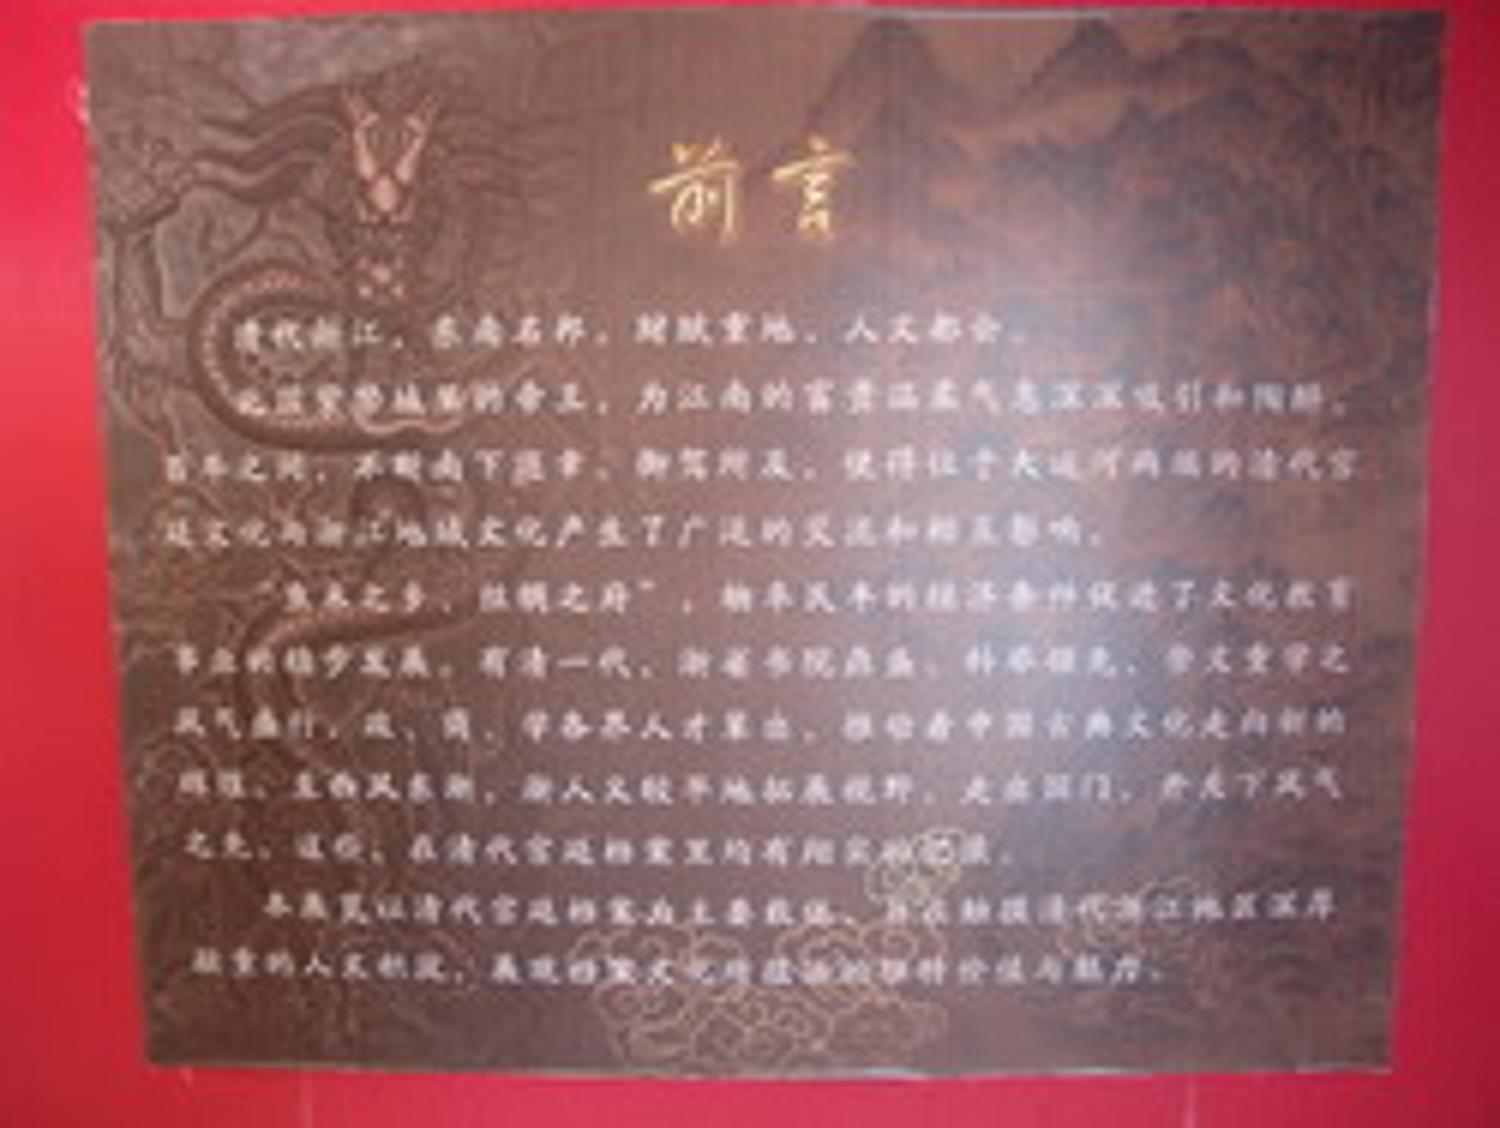 前言
清代浙江，东南名郡，财赋重地，人文都会。
紫禁城里的帝王，为江南的富贵温柔气息深深吸引和陶醉，
百年之间，不断南下巡幸，御驾所及，使得位于大运河两端的清代宫
廷文化与浙江地域文化产生了广泛的交流和相互影响。
“鱼米之乡，丝绸之府”，物阜民丰的经济条件促进了文化教育
事业的稳步发展。有清一代，浙省书院鼎盛，科举领先，崇文重学之
风气盛行，政、商、学各界人才辈出，推动着中国古典文化走向新的
辉煌。至西风东渐，浙人又较早地拓展视野，走出国门，开天下风气
之先。这些，在清代宫廷档案里均有翔实的记录。
本展览以清代宫廷档案为主要载体，触摸清代浙江地区深厚
凝重的人文积淀，展现档案文化的独特价值与魅力。